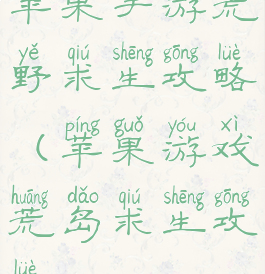 苹果手游荒
yě qiú shēng gōng lüè
野求生攻略
píng guǒ yóu xì
（苹果游戏
huāng dǎo qiú shēng gōng
荒岛求生攻
lüè